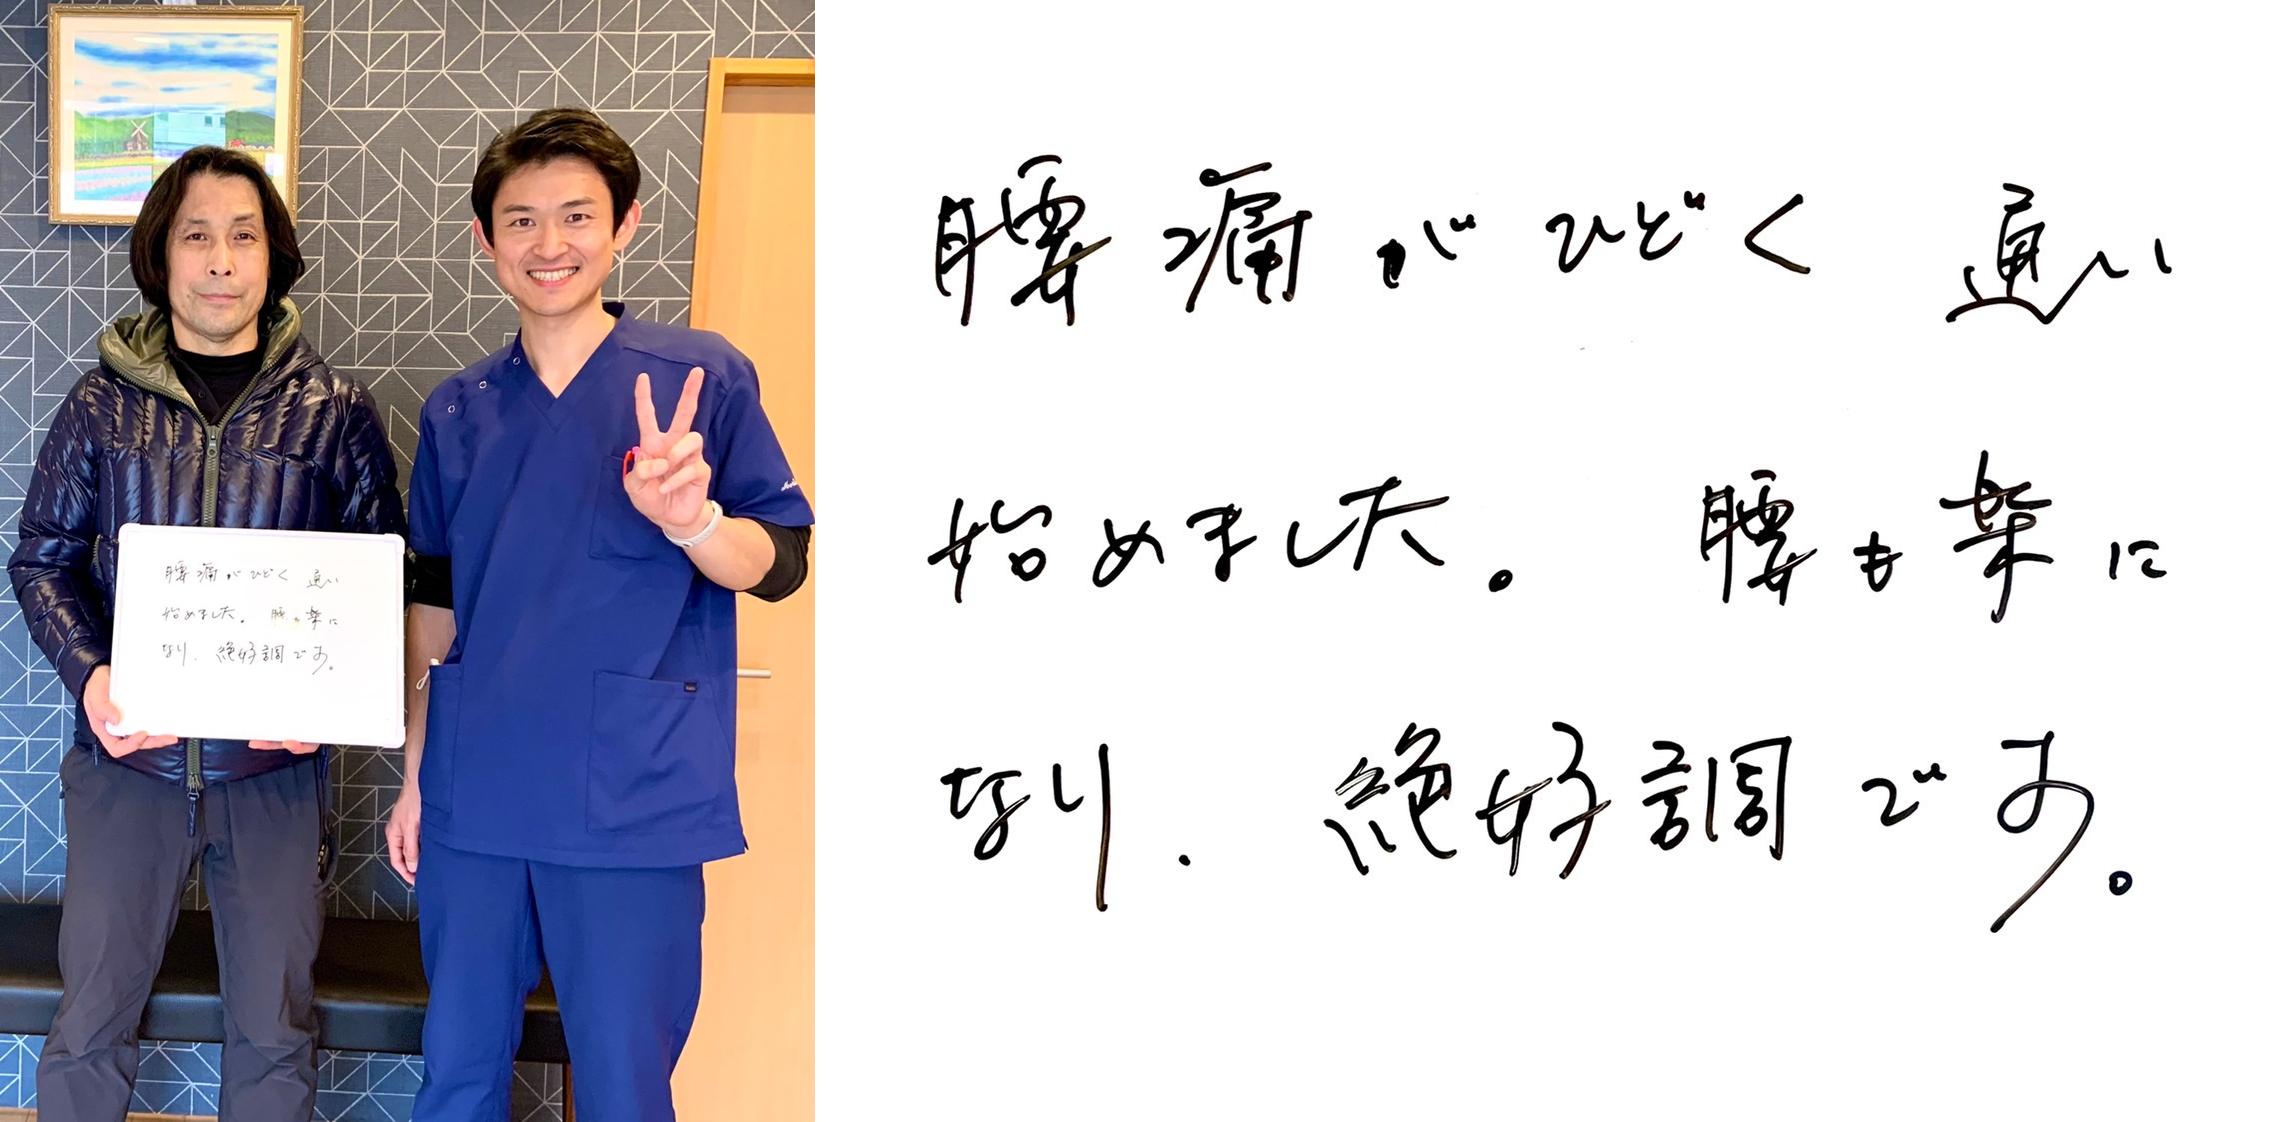 腰痛がひどく 通い
始めました。 腰も楽に
なり. 絶好調です。
腰痛がひどく 通い
始めました。 腰も楽に
なり. 絶好調です。